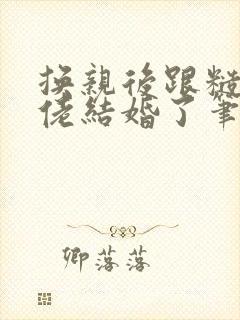 换親後跟糙
佬結婚了筆
卿落落